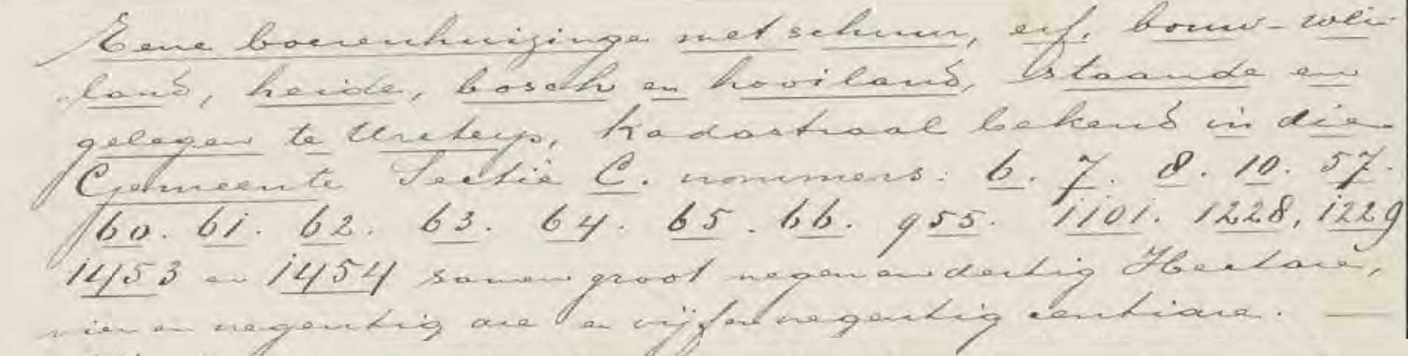 Eene boerenhuizinge met schuur, erf, bouw- wei-
land, heide, bosch en hooiland, staande en
gelegen te Ureterp, kadastraal bekend in die
Gemeente Sectie C. nommers: 6. 7. 8. 10. 57.
60. 61. 62. 63. 64. 65. 66. 955. 1101. 1228, 1229
1453 en 1454 samen groot negenendertig Hectare,
vier en negentig are en vijfennegentig centiare.